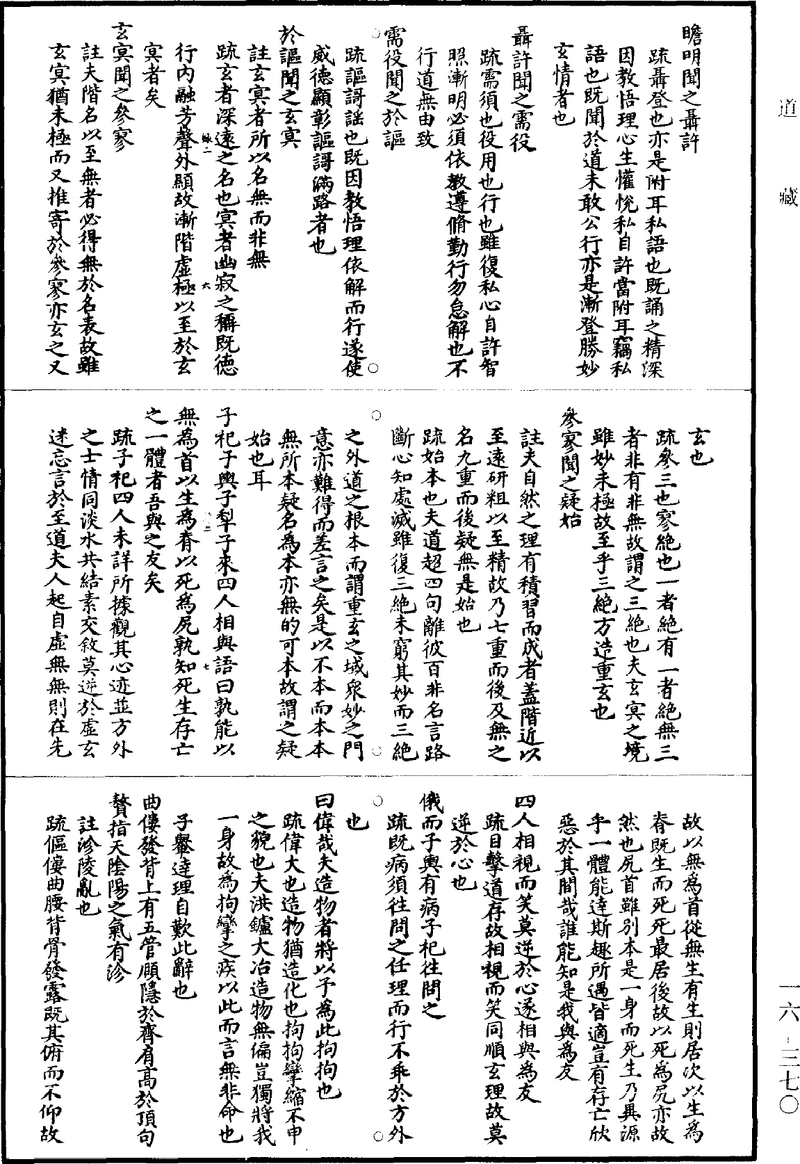 道藏
瞻明聞之聶許
疏聶登也亦是附耳私語也既誦之精深
因教悟理心生懽悅私自許當附耳竊私
語也既聞於道未敢公行亦是漸登勝妙
玄情者也
聶許聞之需役
疏需須也役用也行也雖復私心自許智
照漸明必須依教遵脩勤行勿怠解也不
行道無由致
需役聞之於謳
疏謳謌謠也既因教悟理依解而行遂使
威德顯彰謳謌滿路者也
於謳聞之玄冥
註玄冥者所以名無而非無
疏玄者深遠之名也冥者幽寂之稱既德
行內融芳聲外顯故漸階虛極以至於玄
冥者矣
玄冥聞之參寥
註夫階名以至無者必得無於名表故雖
玄冥猶未極而又推寄於參寥亦玄之又
玄也
疏參三也寥絕也一者絕有一者絕無三
者非有非無故謂之三絕也夫玄冥之境
雖妙未極故至乎三絕方造重玄也
參寥聞之疑始
註夫自然之理有積習而成者蓋階近以
至遠研粗以至精故乃七重而後及無之
名九重而後疑無是始也
疏始本也夫道超四句離彼百非名言路
斷心知處滅雖復三絕未窮其妙而三絕
之外道之根本而謂重玄之域衆妙之門
意亦難得而差言之矣是以不本而本本
無所本疑名為本亦無的可本故謂之疑
始也耳
子祀子輿子犁子來四人相與語曰孰能以
無為首以生為脊以死為尻孰知死生存亡
之一體者吾與之友矣
疏子祀四人未詳所據觀其心迹並方外
之士情同淡水共結素交敘莫逆於虛玄
述忘言於至道夫人起自虛無無則在先
故以無為首從無生有生則居次以生為
脊既生而死死最居後故以死為尻亦故
然也尻首雖別本是一身而死生乃異源
乎一體能達斯趣所遇皆適豈有存亡欣
惡於其間哉誰能知是我與為友
四人相視而笑莫逆於心遂相與為友
疏目擊道存故相視而笑同順玄理故莫
逆於心也
俄而子輿有病子祀往問之
疏既病須往問之任理而行不乖於方外
也
曰偉哉夫造物者將以予為此拘拘也
疏偉大也造物猶造化也拘拘攣縮不申
之貌也夫洪鑪大冶造物無偏豈獨將我
一身故為拘攣之疾以此而言無非命也
子輿達理自歎此辭也
曲僂發背上有五管頤隱於齊肩高於頂句
贅指天陰陽之氣有沴
註沴陵亂也
疏傴僂曲腰背骨發露既其俯而不仰故
一六‐三七〇